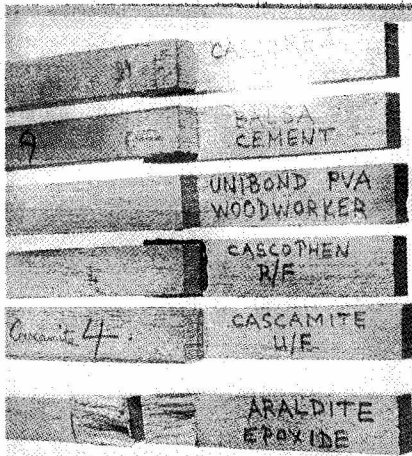 BALSA
CEMENT
9
UNIBOND PVA
WOODWORKER
CASCOPHEN
R/F
CASCAMITE
U/F
Cascamite 4.
ARALDITE
EPOXIDE